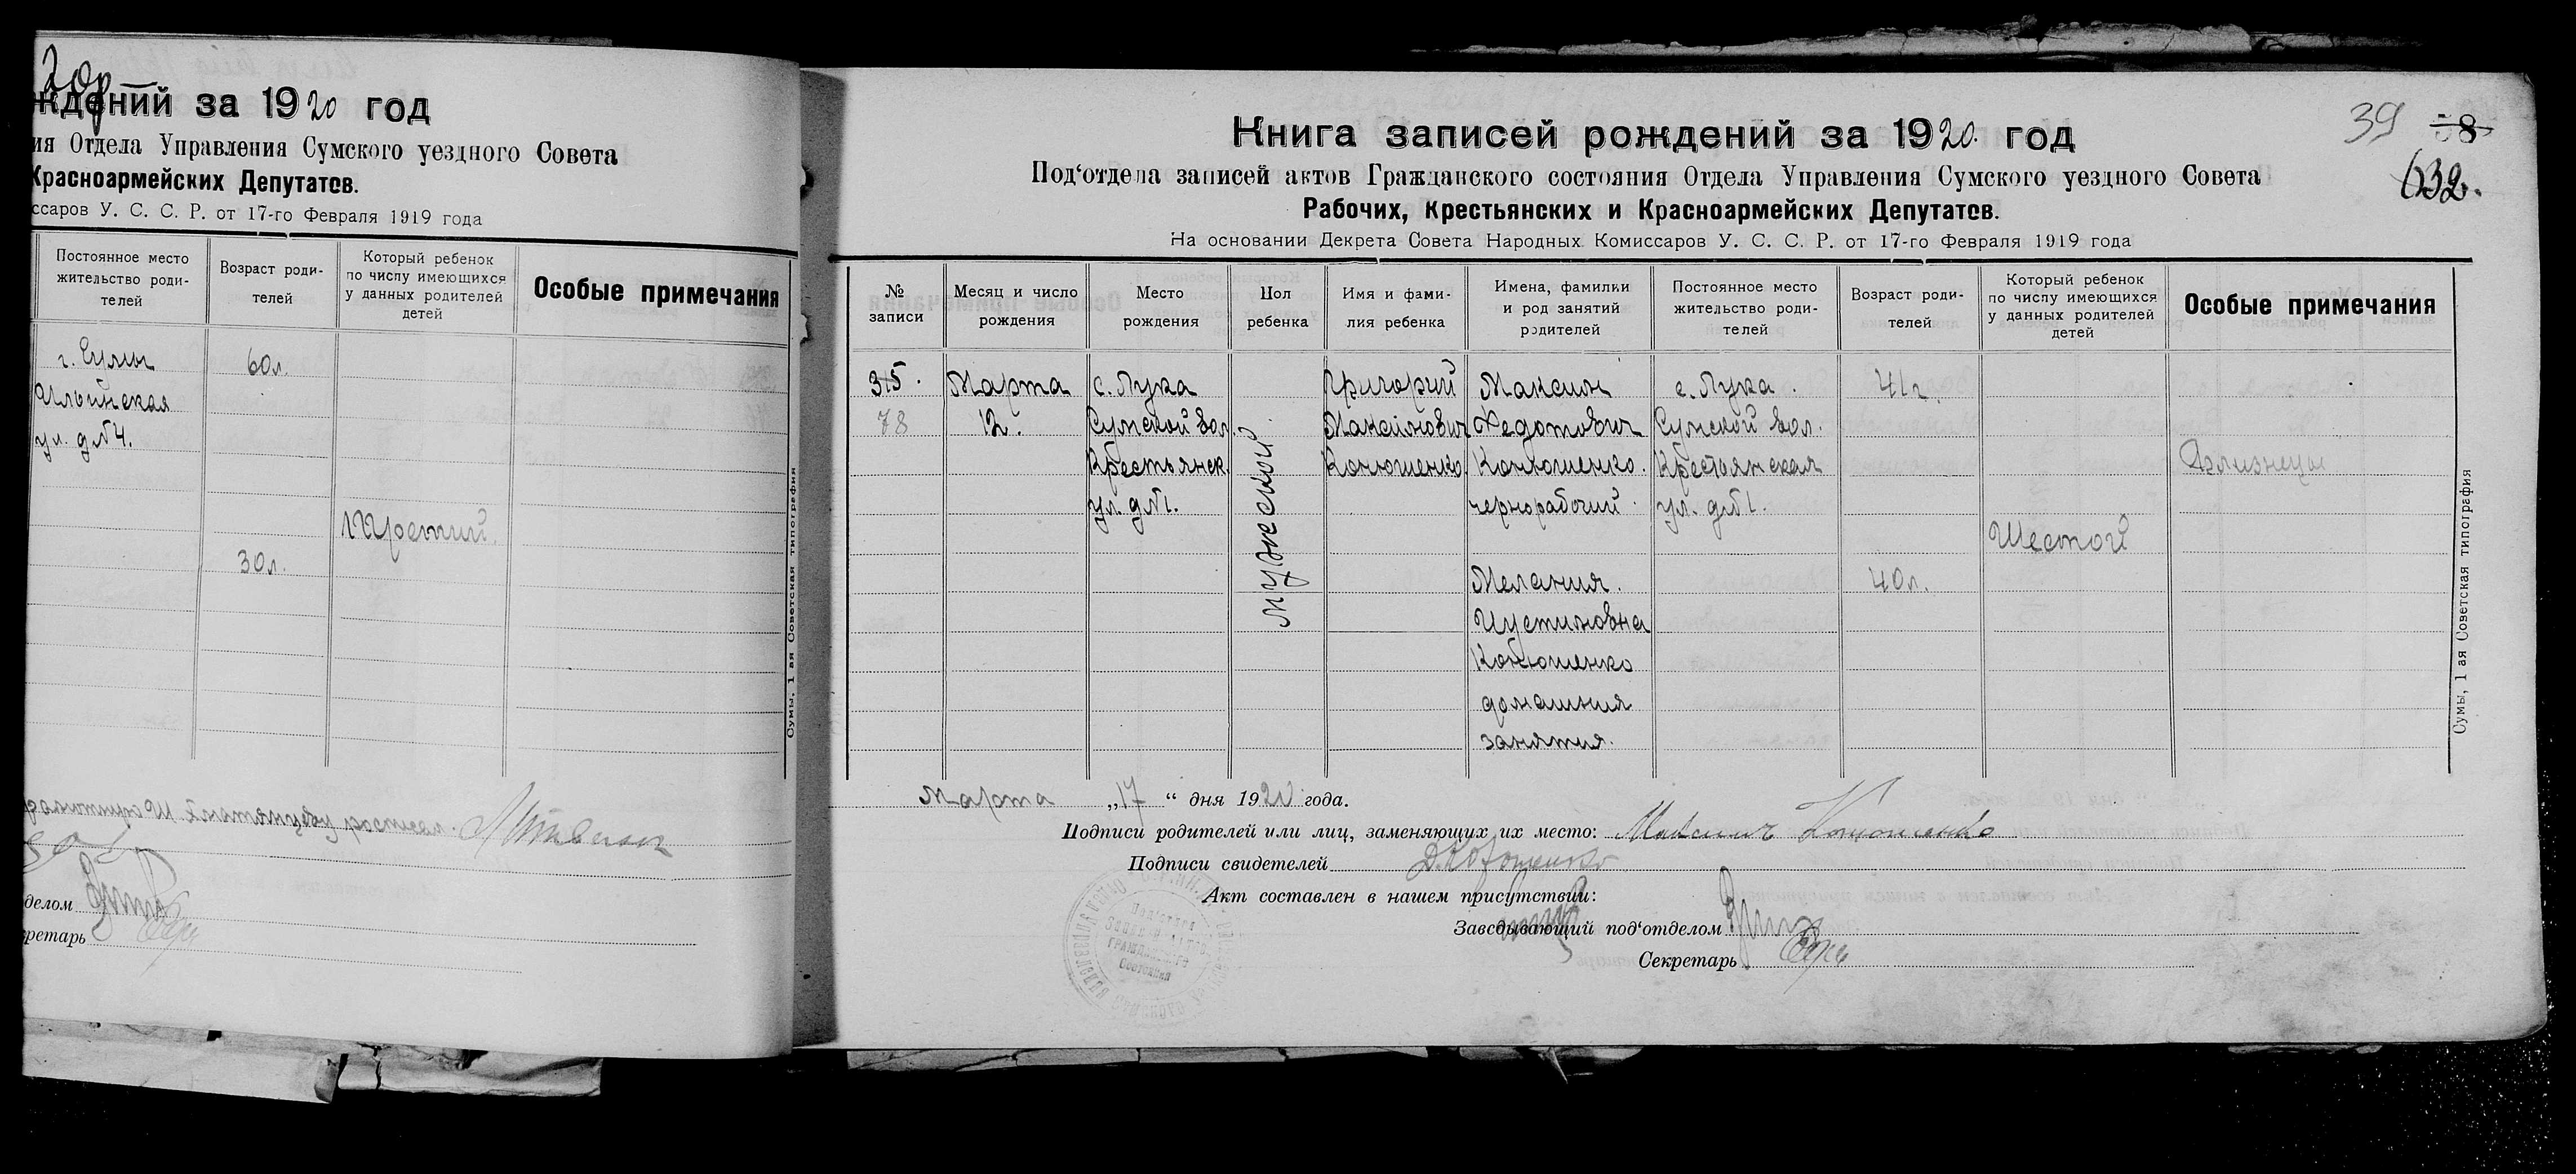 ждений за 1920 год
ия Отдела Управления Сумского уездного Совета
Красноармейских Депутатов.
ссаров У. С. С. Р. от 17-го Февраля 1919 года
Постоянное место жительство роди-телей
Возраст роди-телей
Который ребенок по числу имеющихся у данных родителей детей
Особые примечания
г. Сумы
60л.
Ильинская
ул. д№4.
Третий
30л.
Сумы, 1 ая Советская типография
делом
кретарь
39
632.
Книга записей рождений за 1920 год
Под‘отдела записей актов Гражданского состояния Отдела Управления Сумского уездного Совета
Рабочих, Крестьянских и Красноармейских Депутатов.
На основании Декрета Совета Народных Комиссаров У. С. С. Р. от 17-го Февраля 1919 года
№ записи
Месяц и число рождения
Место рождения
Пол ребенка
Имя и фами-лия ребенка
Имена, фамилии и род занятий родителей
Постоянное место жительство роди-телей
Возраст роди-телей
Который ребенок по числу имеющихся у данных родителей детей
Особые примечания
315.
78
Марта
12.
с. Лука
Сумской вол.
Крестьянск.
ул. д№1.
мужеской
Григорий
Максимович
Конюшенко.
Максим
Федотович
Конюшенко.
чернорабочий
Мелания.
Иустиновна
Конюшенко
домашния
занятия.
с. Лука.
Сумской вол.
Крестьянская
ул. д№1.
41г.
40л.
Шестой
Близнецы
Сумы, 1 ая Советская типография
Марта „17“ дня 1920 года.
Подписи родителей или лиц, заменяющих их место: Максим Конюшенко
Подписи свидетелей
Акт составлен в нашем присутствии:
Заведывающий под‘отделом
Секретарь